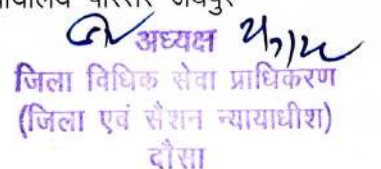 परिसर जयपुर
अध्यक्ष
जिला विधिक सेवा प्राधिकरण
(जिला एवं सैशन न्यायाधीश)
दौसा